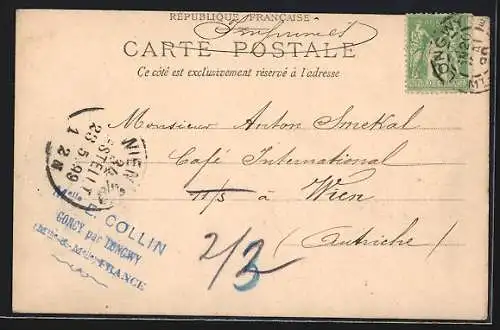 RÉPUBLIQUE FRANÇAISE
Imprimés
CARTE POSTALE
Ce côté est exclusivement réservé à l'adresse
LONGWY
Monsieur Anton Smekal
Café International
11/5 à Wien
(Autriche)
2/3
WIEN
BESTELLT
23 5 99
1 2 N
Melle E. COLLIN
GORCY par LONGWY
(Mthe-&-Melle) FRANCE